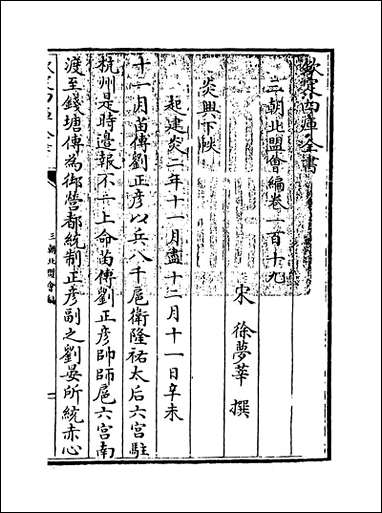 欽定四庫全書
三朝北盟會編卷一百十九
宋 徐夢莘 撰
炎興下帙
起建炎二年十一月盡十二月十一日辛未
十一月苗傅劉正彥以兵八千扈衛隆祐太后六宮駐
杭州是時邊報不一上命苗傅劉正彥帥師扈六宮南
渡至錢塘傅為御營都統制正彥副之劉晏所統赤心
三朝北盟會編